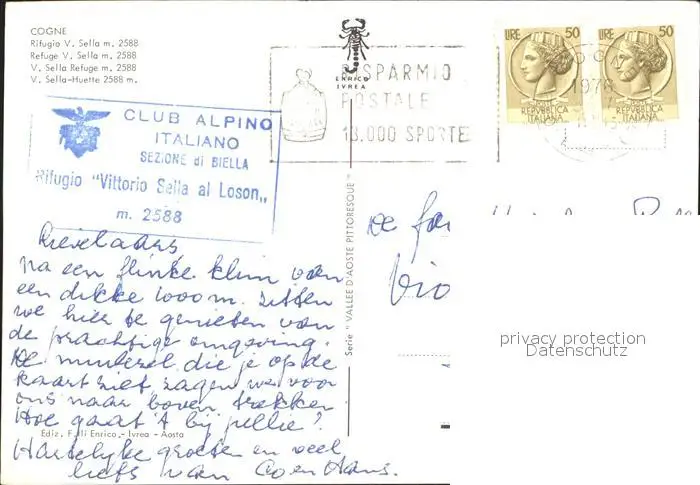 COGNE
Rifugio V. Sella m. 2588
Refuge V. Sella m. 2588
V. Sella Refuge m. 2588
V. Sella-Huette 2588 m.
ENRICO
IVREA
RISPARMIO
POSTALE
18.000 SPORTE
LIRE 50
REPVBBLICA
ITALIANA
LIRE 50
REPVBBLICA
ITALIANA
1976
CLUB ALPINO
ITALIANO
SEZIONE di BIELLA
Rifugio "Vittorio Sella al Loson„
m. 2588
Na een flinke klim van
een dikke 1000 m. zitten
we hier te genieten van
de prachtige omgeving.
De muilezel die je op de
kaart ziet zagen we voor
ons naar boven trekken
Hoe gaat 't bij jullie?
Hartelijke groeten en veel
liefs van Coen Hans.
De fam
Ediz. F.lli Enrico - Ivrea - Aosta
Serie " VALLEE D'AOSTE PITTORESQUE "
privacy protection
Datenschutz